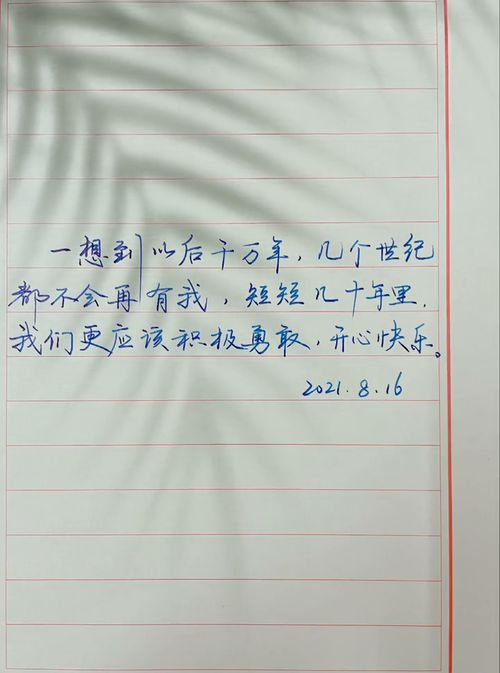 一想到以后千万年，几个世纪
都不会再有我，短短几十年里，
我们更应该积极勇敢，开心快乐。
2021.8.16